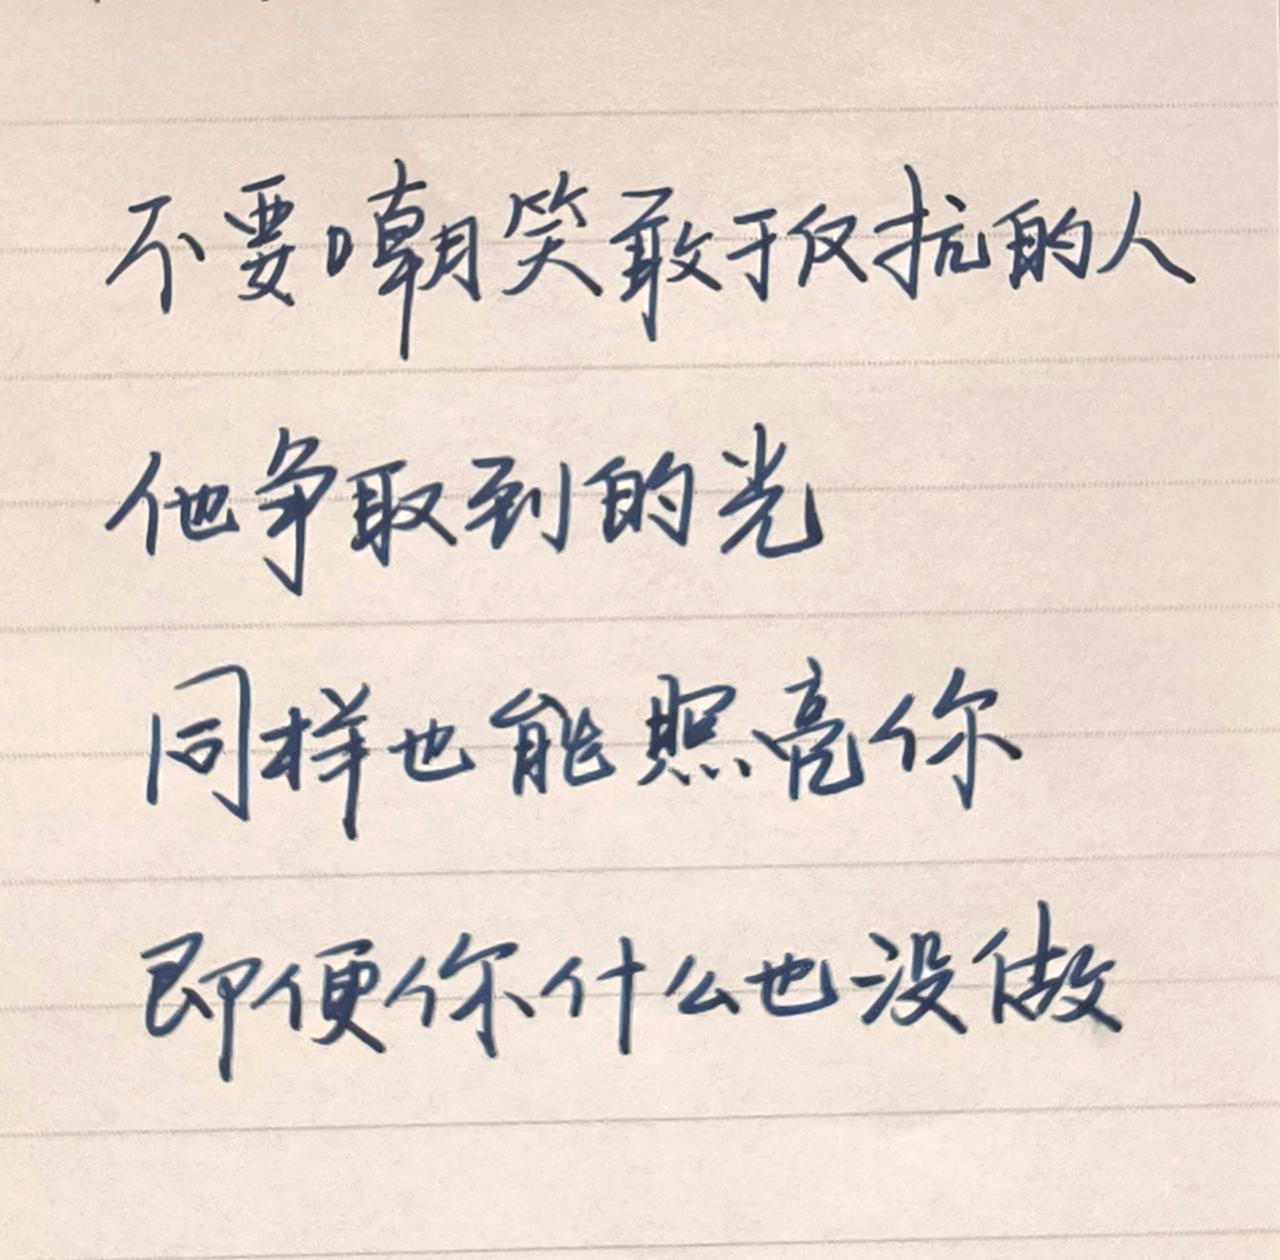 不要嘲笑敢于仅抗的人
他争取到的光
同样也能照亮你
即便你什么也没做